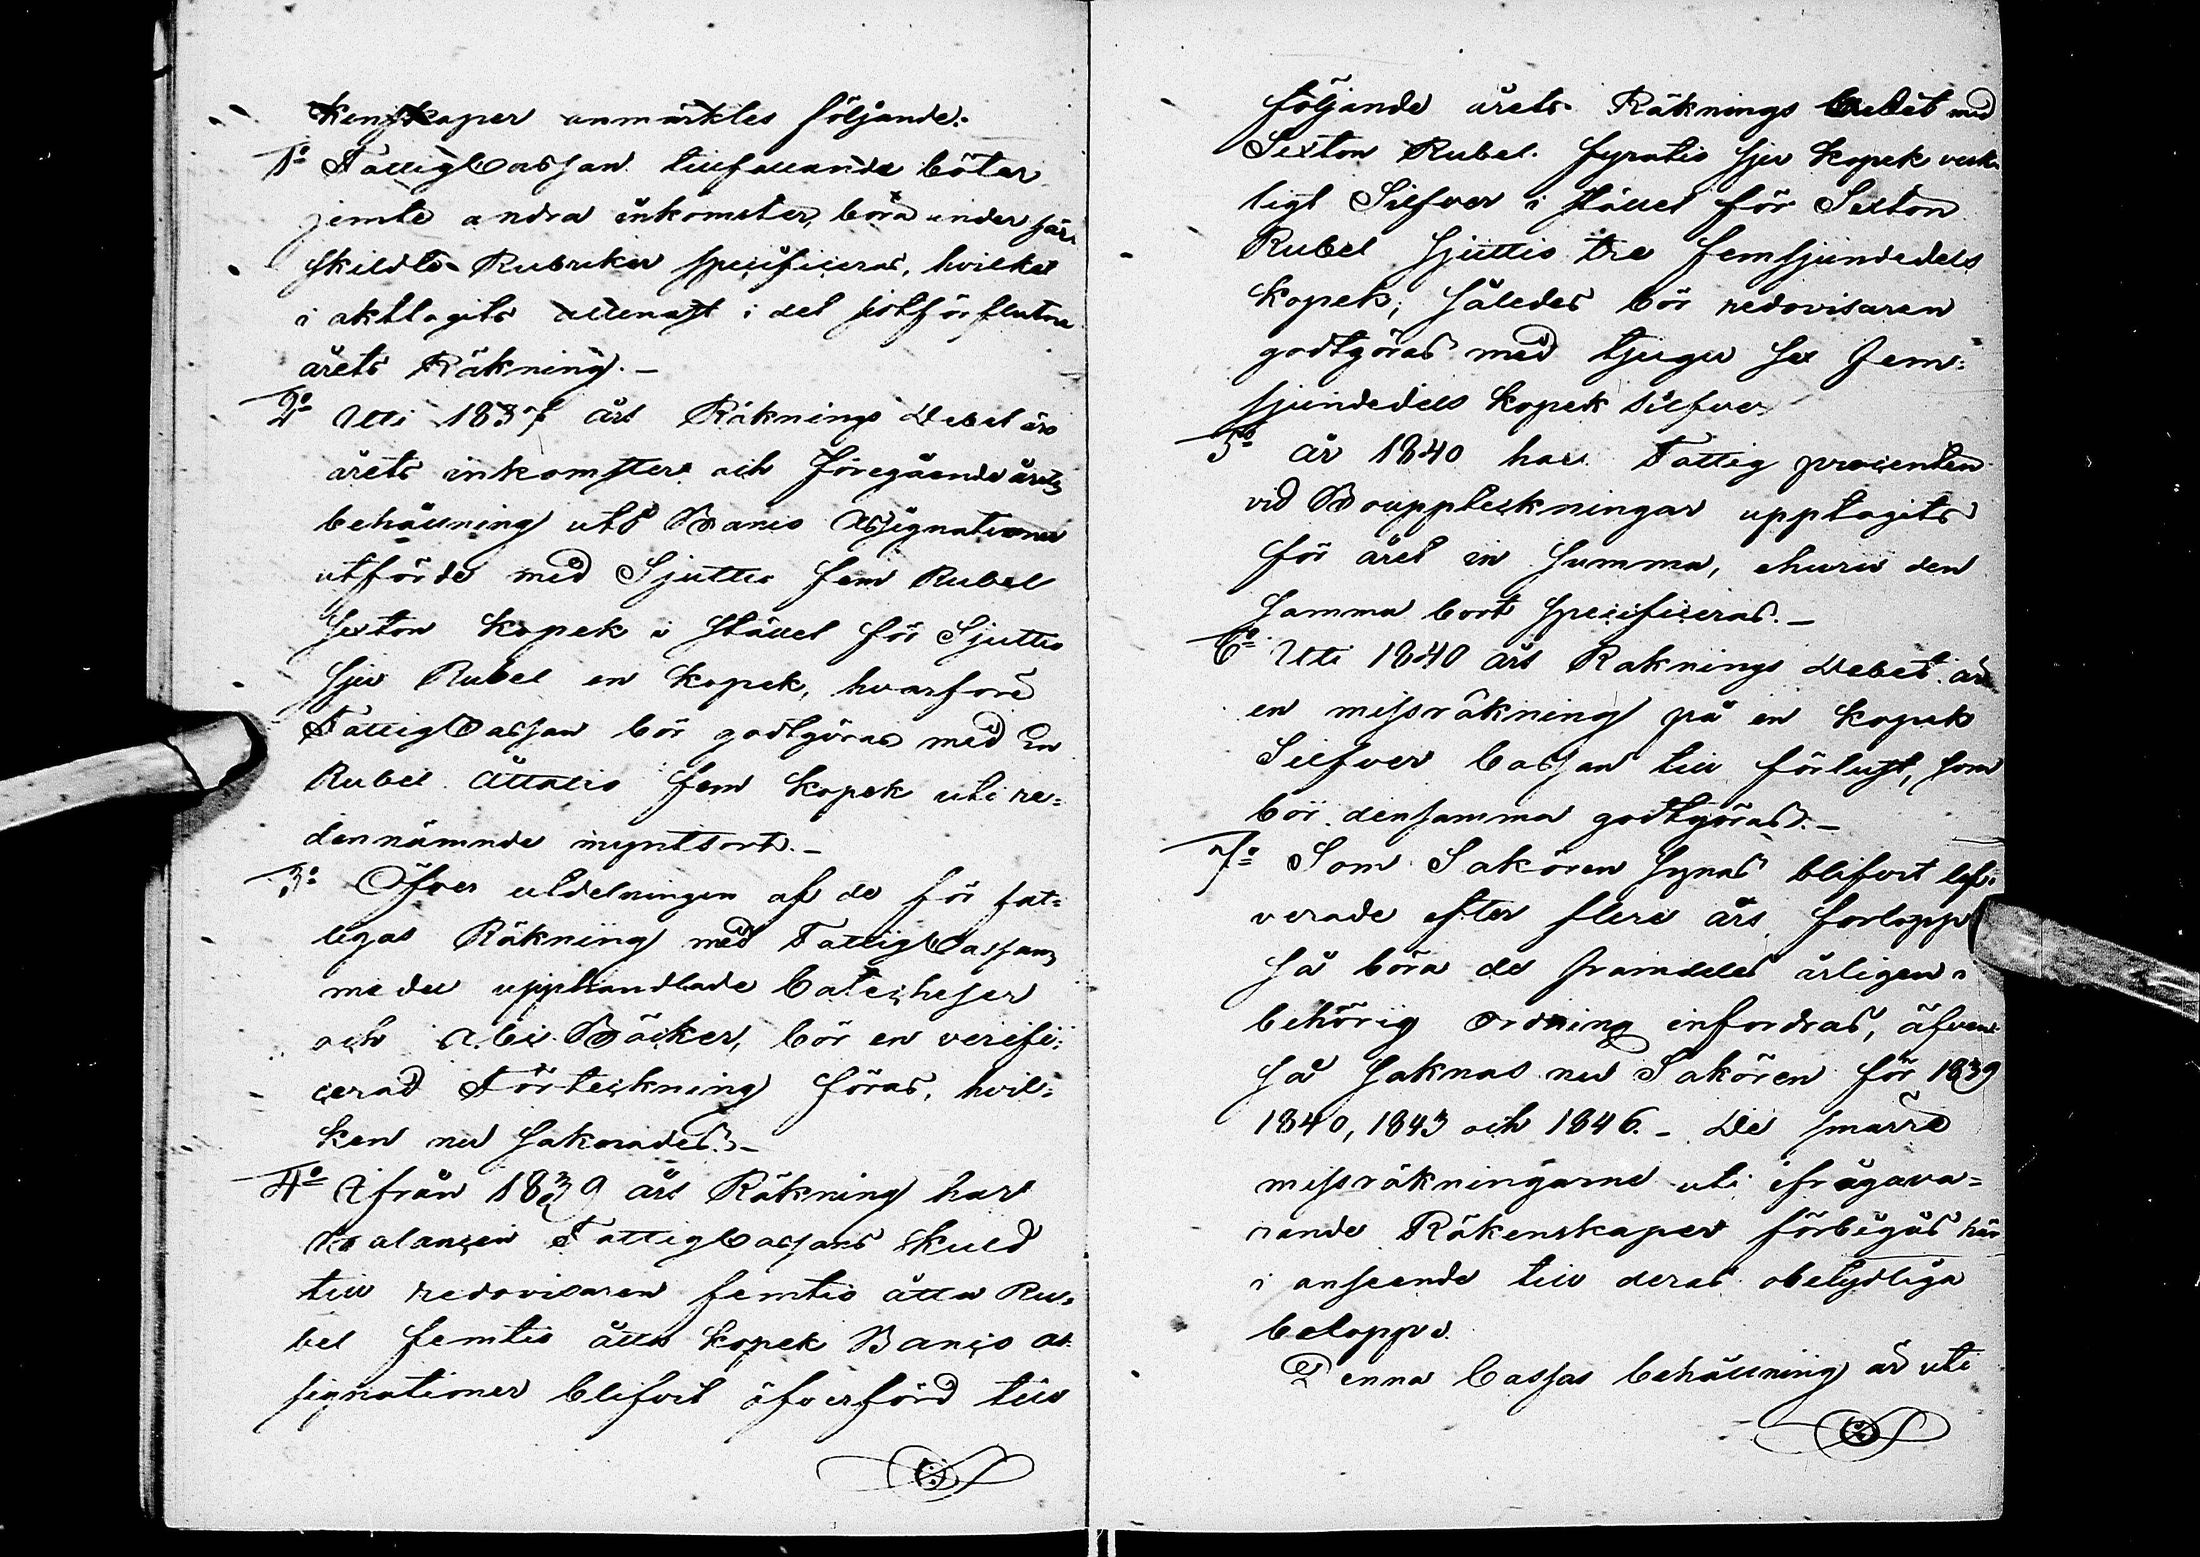 kenskaper anmärktes följande:
1o FattigCassan tillfallande böter
jemte andra inkomster, böra under sär-
skildte Rubriker specificeras, hvilket
i akttagits allenast i det sistförflutne
årets Räkning.—
2o Uti 1837 års Räknings Debet äro
årets inkomster och föregående årets
behållning uti Banco Assignationer
utförde med Sjuttio fem Rubel
sexton kopek i stället för Sjuttio
sju Rubel en kopek, hvarföre
FattigCassan bör godtgöras med En
Rubel Åttatio fem kopek uti re=
dannämnde myntsort.—
3o Öfver utdelningen af de för fat=
tigas Räkning med FattigCassans
medel upphandlade Catecheser
och Abc Böcker, bör en verifi=
cerad Förteckning föras, hvil=
ken nu saknades.—
4o Ifrån 1839 års Räkning har
Balancen FattigCassans skuld
till redovisaren femtio åtta Ru=
bel femtio åtta kopek Banco as
signationer blifvit öfverförd till
följande årets Räknings Debet med
Sexton Rubel fyratio sju kopek verk-
ligt Silfver i stället för Sexton
Rubel sjuttio tre femsjundedels
kopek; således bör redovisaren
godtgöras med tjugu sex fem=
sjundedels kopek silfver
5o år 1840 har Fattig procenten
vid Bouppteckningar upptagits
för året in summa, ehuru den
samma bort specificeras.—
6o Uti 1840 års Räknings Debet är
en missräkning på en kopek
Silfver Cassan till förlust, som
bör densamma godtgöras.—
7o Som Sakören synas blifvit lef-
verade efter flere års förlopp
så böra de framdeles årligen i
behörig ordning infordras, äfven
så saknas nu Sakören för 1839
1840, 1843 och 1846.— De smärre
missräkningarne uti ifrågava=
rande Räkenskaper förbigås här
i anseende till deras obetydliga
belopp.
Denna Cassas behållning är uti